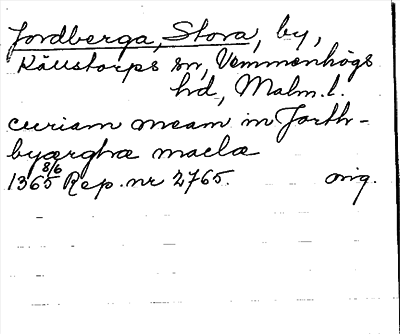 Jordberga, Stora, by,
Källstorps sn, Vemmenhögs
hd, Malm. l.
curiam meam in Jorth-
byærghæ maclæ
1365 8/6 Rep. nr 2765. orig.